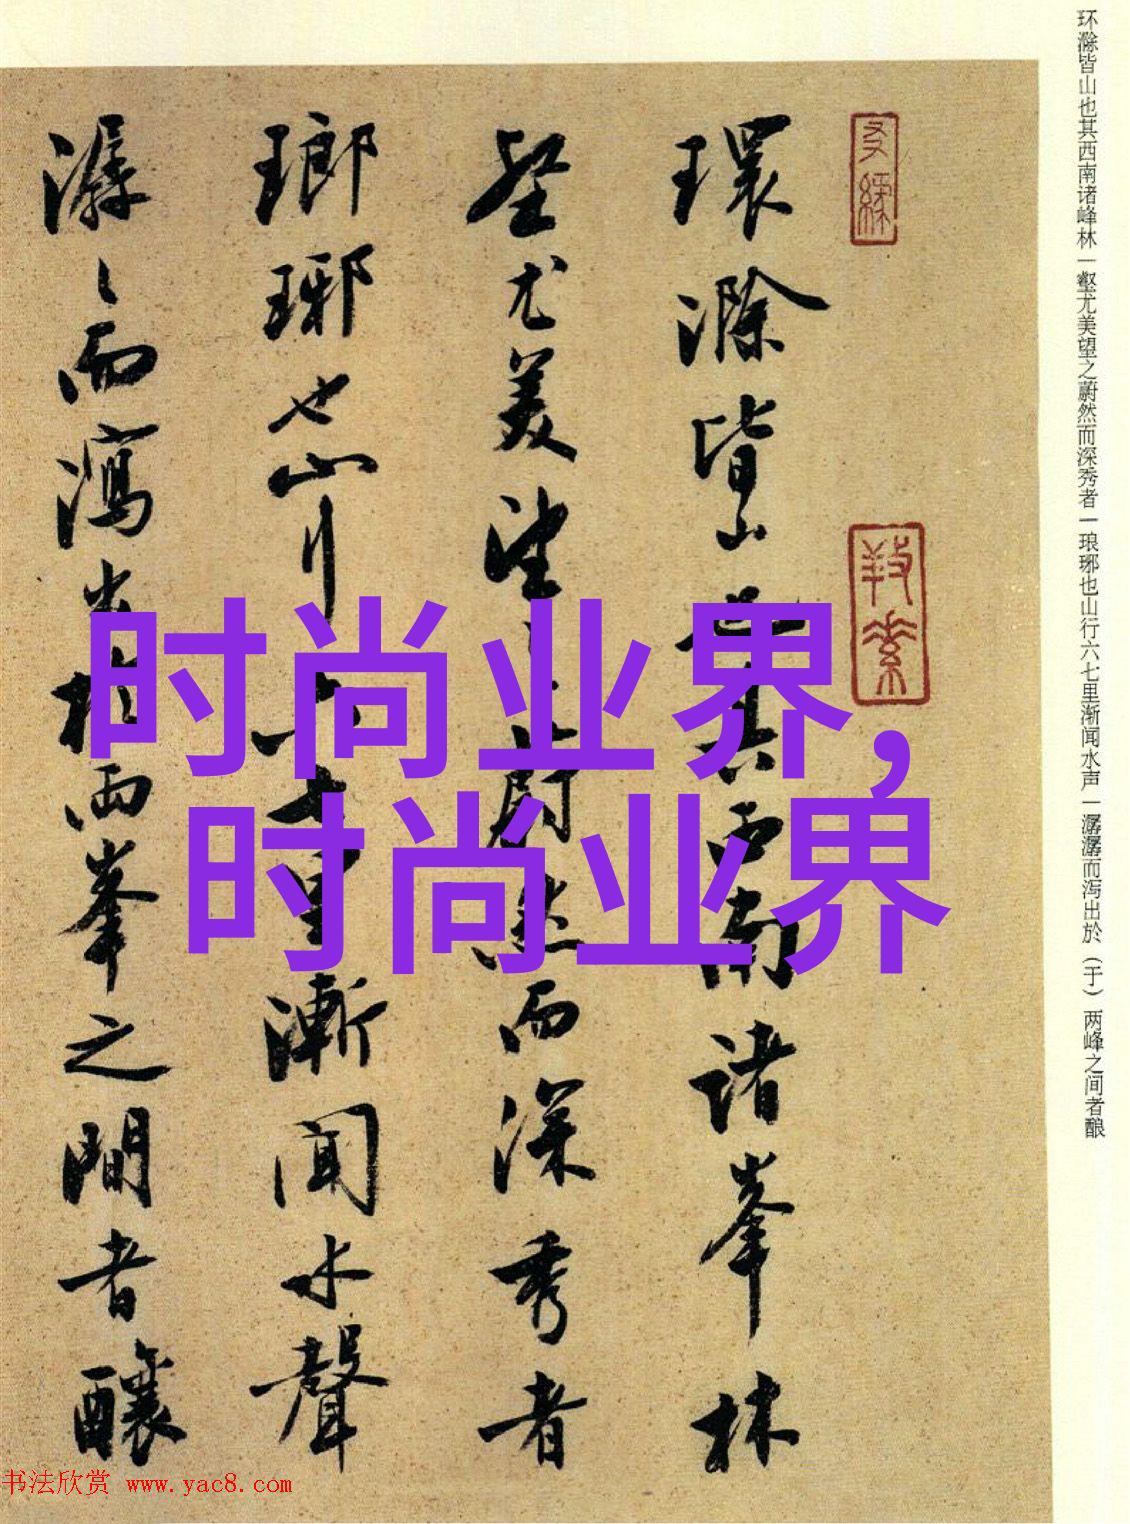 环滁皆山也其西南诸峰林一壑尤美望之蔚然而深秀者一琅琊也山行六七里渐闻水声一潺潺而泻出於（于）两峰之间者酿
環滁皆山也其西南諸峯林
壑尤美望之蔚然而深秀者
瑯琊也山行六七里漸聞水聲
潺〻而瀉出於兩峯之間者釀
时尚业界，
时尚业界
书法欣赏 www.yac8.com